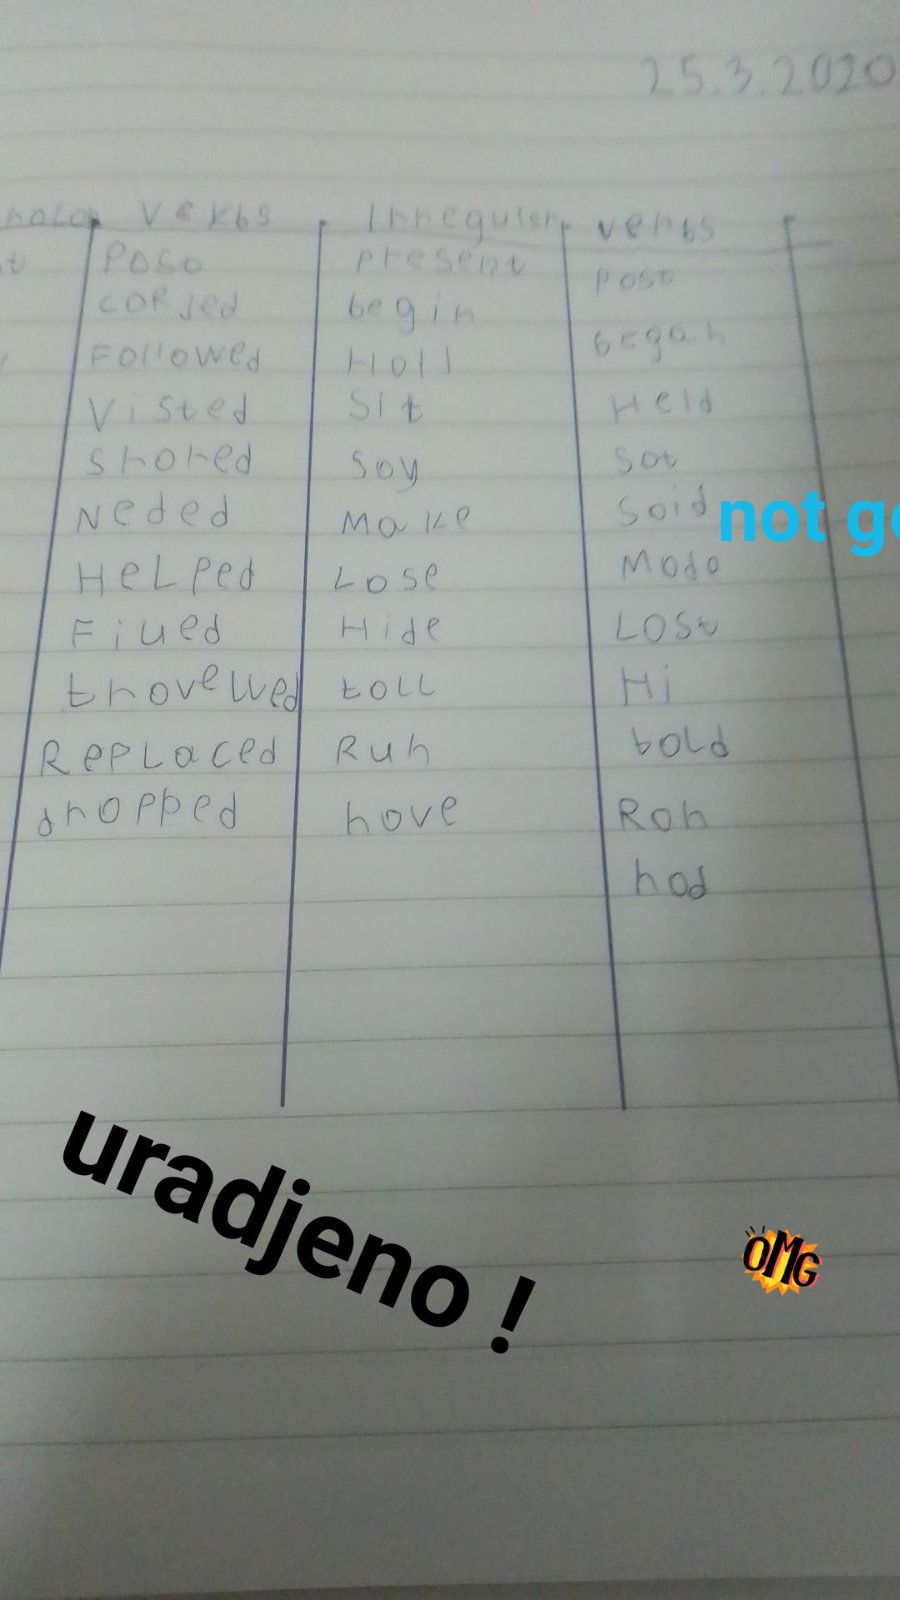 25.3.2020
Verbs Irregular verbs
Past present past
begin began
Followed Holl Held
Visted Sit Sat
Shared Say Said not g
Neded Make Made
Helped Lose Lost
Hide Hi
travelled tall told
Replaced Run Ran
dropped have had
uradjeno !
OMG